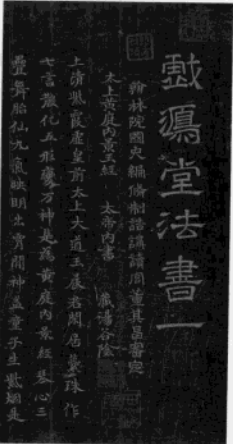 戲鴻堂法書一
翰林院國史編脩制誥講讀同董其昌審定
太上黃庭內景玉經 太帝內書
暘谷陰
上清紫霞虛皇前太上大道玉晨君閒居蘂珠作
七言散化五形變万神是為黃庭內景經琴心三
疊舞胎仙九氣映明出霄間神盖童子生紫烟是